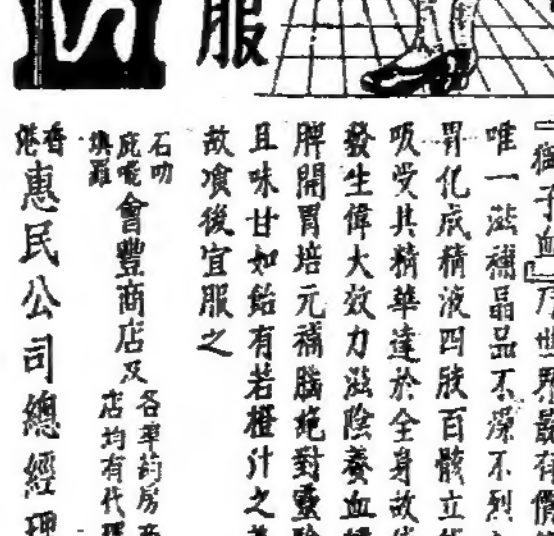 服
『獅子血』乃世界最有價
唯一滋補晶品不深不烈
胃化成精液四肢百骸立
吸受其精華達於全身故
發生偉大效力滋陰養血
脾開胃培元補腦絕對靈驗
且味甘如飴有若橙汁之
故飡後宜服之
石叻
庇能
填羅
會豐商店及
各埠葯房
店均有代理
香港
惠民公司總經理